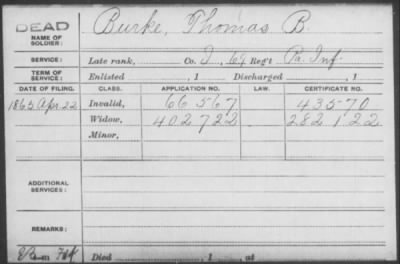 DEAD
NAME OF SOLDIER: Burke, Thomas B.
SERVICE: Late rank, Co. I, 69 Reg't Pa. Inf.
TERM OF SERVICE: Enlisted , 1 Discharged , 1
DATE OF FILING. CLASS. APPLICATION NO. LAW. CERTIFICATE NO.
1865 Apr. 22 Invalid, 66567 43570
Widow, 402722 282122
Minor,
ADDITIONAL SERVICES:
REMARKS:
Died , 1 , at